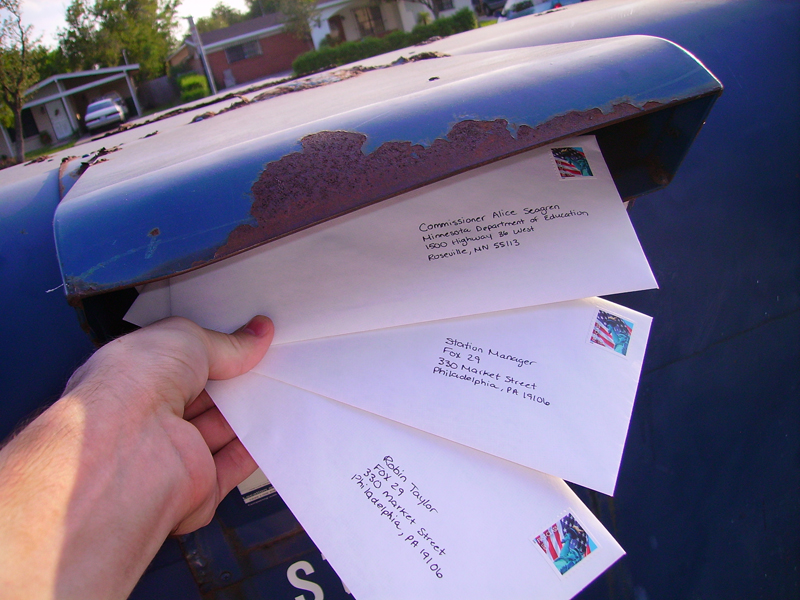 Commissioner Alice Seagren
Minnesota Department of Education
1500 Highway 36 West
Roseville, MN 55113
Station Manager
Fox 29
330 Market Street
Philadelphia, PA 19106
Robin Taylor
FOX 29
330 Market Street
Philadelphia, PA 19106
S